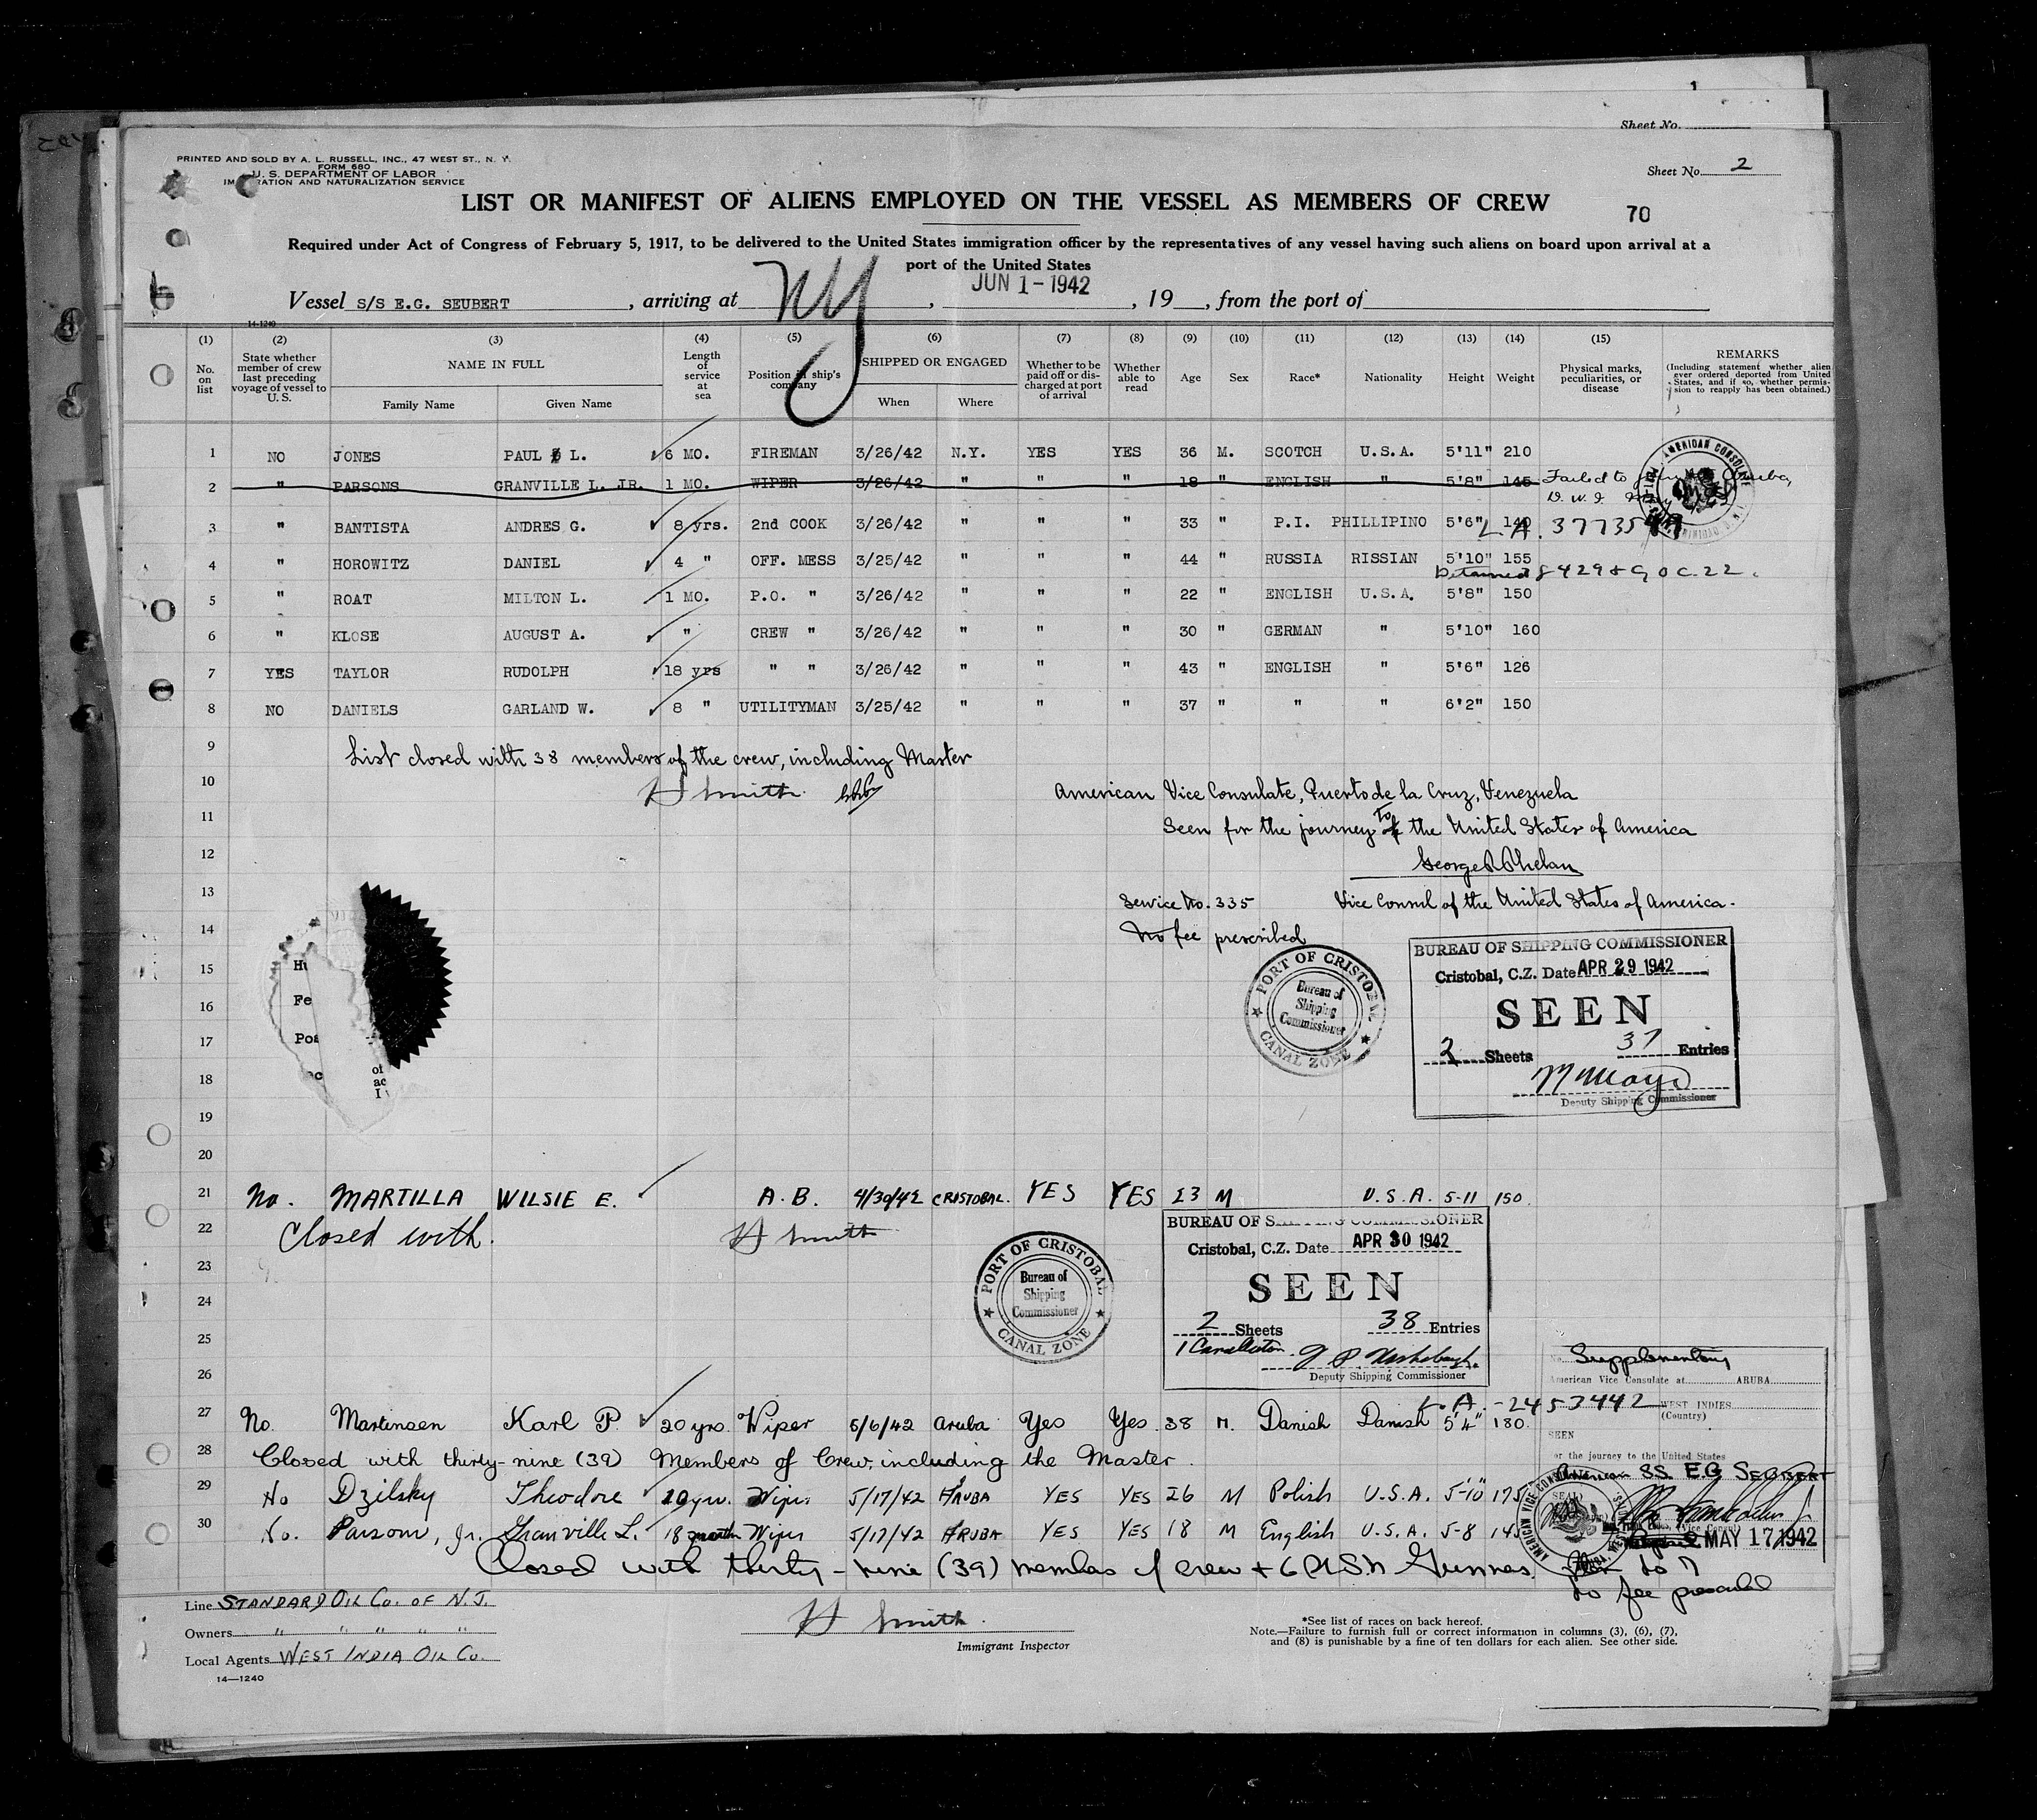 Sheet No.
PRINTED AND SOLD BY A. L. RUSSELL, INC., 47 WEST ST., N. Y.
FORM 680
U. S. DEPARTMENT OF LABOR
IMMIGRATION AND NATURALIZATION SERVICE
Sheet No. 2
LIST OR MANIFEST OF ALIENS EMPLOYED ON THE VESSEL AS MEMBERS OF CREW
70
Required under Act of Congress of February 5, 1917, to be delivered to the United States immigration officer by the representatives of any vessel having such aliens on board upon arrival at a
port of the United States
Vessel S/S E.G. SEUBERT, arriving at NY, JUN 1-1942, 19, from the port of
14-1240
(1) (2) (3) (4) (5) (6) (7) (8) (9) (10) (11) (12) (13) (14) (15)
No. on list
State whether member of crew last preceding voyage of vessel to U.S.
NAME IN FULL
Family Name
Given Name
Length of service at sea
Position in ship's company
SHIPPED OR ENGAGED
When
Where
Whether to be paid off or discharged at port of arrival
Whether able to read
Age
Sex
Race*
Nationality
Height
Weight
Physical marks, peculiarities, or disease
REMARKS
(Including statement whether alien ever ordered deported from United States, and if so, whether permission to reapply has been obtained.)
1 NO JONES PAUL L. 6 MO. FIREMAN 3/26/42 N.Y. YES YES 36 M. SCOTCH U.S.A. 5'11" 210
2 " PARSONS GRANVILLE L. JR. 1 MO. WIPER 3/26/42 " " " 18 " ENGLISH " 5'8" 145 Failed to join at Aruba,
D. W. I.
3 " BANTISTA ANDRES G. 8 yrs. 2nd COOK 3/26/42 " " " 33 " P.I. PHILLIPINO 5'6" 140 L.A.
4 " HOROWITZ DANIEL 4 " OFF. MESS 3/25/42 " " " 44 " RUSSIA RISSIAN 5'10" 155
Detained
5 " ROAT MILTON L. 1 MO. P.O. " 3/26/42 " " " 22 " ENGLISH U.S.A. 5'8" 150
6 " KLOSE AUGUST A. " CREW " 3/26/42 " " " 30 " GERMAN " 5'10" 160
7 YES TAYLOR RUDOLPH 18 yrs " " 3/26/42 " " " 43 " ENGLISH " 5'6" 126
8 NO DANIELS GARLAND W. 8 " UTILITYMAN 3/25/42 " " " 37 " " " 6'2" 150
9 List closed with 38 members of the crew, including Master
10 H Smith
American Vice Consulate, Puerto de la Cruz, Venezuela
11 Seen for the journey to the United States of America
12 George R Phelan
13 Service No. 335 Vice Consul of the United States of America.
14 No fee prescribed
15
16
17
18
19
20
PORT OF CRISTOBAL
Bureau of
Shipping
Commissioner
CANAL ZONE
BUREAU OF SHIPPING COMMISSIONER
Cristobal, C.Z. Date APR 29 1942
SEEN
2 Sheets 37 Entries
Deputy Shipping Commissioner
21 No. MARTILLA WILSIE E. A.B. 4/30/42 CRISTOBAL. YES YES 23 M U.S.A. 5-11 150.
22 Closed with. H Smith
23
24
25
26
PORT OF CRISTOBAL
Bureau of
Shipping
Commissioner
CANAL ZONE
BUREAU OF SHIPPING COMMISSIONER
Cristobal, C.Z. Date APR 30 1942
SEEN
2 Sheets 38 Entries
Deputy Shipping Commissioner
Supplementary
American Vice Consulate at ARUBA
WEST INDIES
(Country)
SEEN
or the journey to the United States
American SS. E.G SEUBERT
MAY 17 1942
27 No. Martinsen Karl P. 20 yrs. Wiper 5/6/42 Aruba Yes Yes. 38 M. Danish Danish 5'4" 180. L.A.-2453442
28 Closed with thirty-nine (39) Members of Crew, including the Master.
29 No Dzilsky Theodore Wiper 5/17/42 ARUBA YES YES 26 M Polish U.S.A. 5-10 175
30 No. Parsons, Jr. Granville L. 18 month Wiper 5/17/42 ARUBA YES YES 18 M English U.S.A. 5-8 145
Closed with thirty-nine (39) members of crew + 6 U.S.N Gunners.
No fee prescribed
Line STANDARD OIL CO. OF N.J.
Owners " " " " "
Local Agents WEST INDIA OIL CO.
14—1240
H Smith
Immigrant Inspector
*See list of races on back hereof.
Note.—Failure to furnish full or correct information in columns (3), (6), (7),
and (8) is punishable by a fine of ten dollars for each alien. See other side.